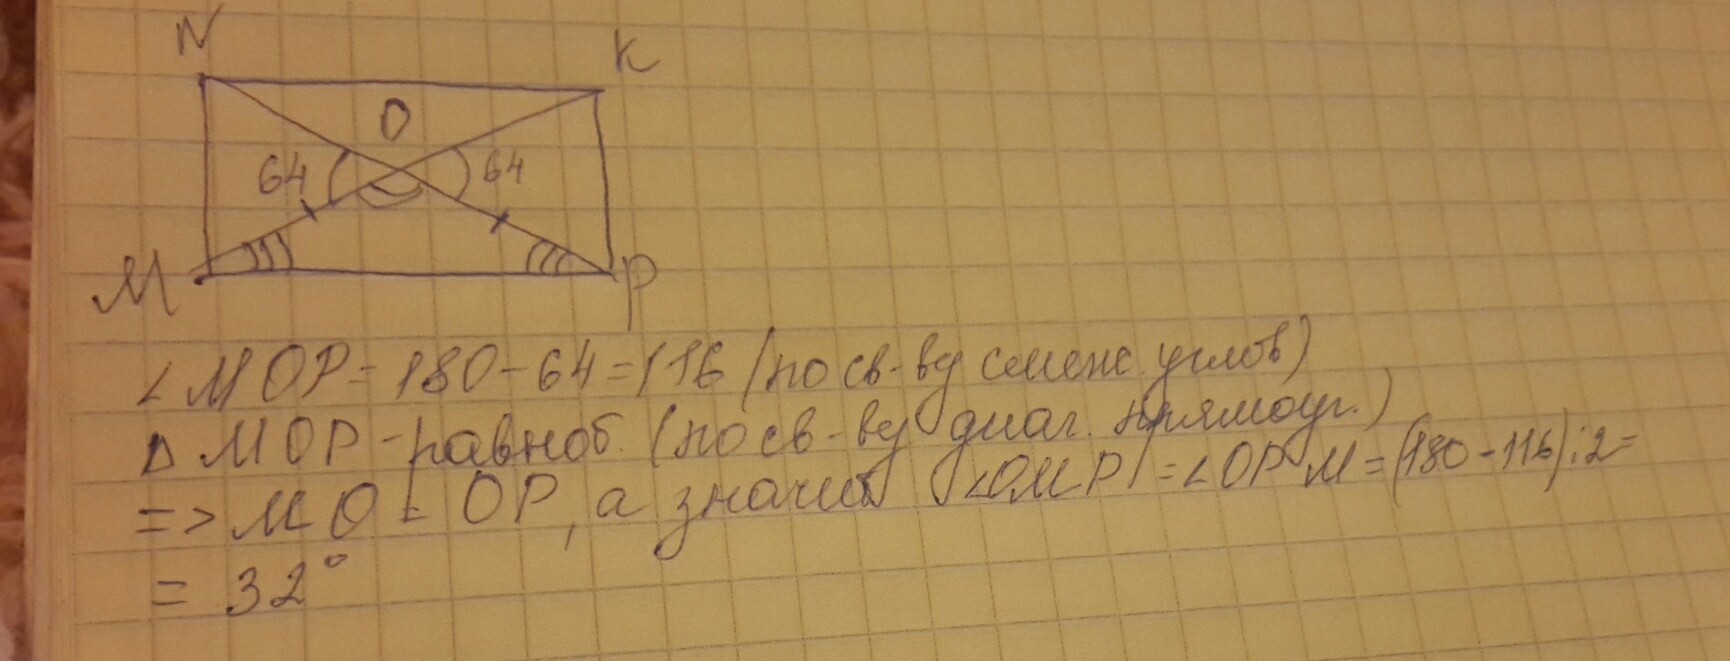 N
K
O
64
64
M
P
∠MOP = 180 - 64 = 116 (по св-ву смеж. углов)
Δ MOP - равноб. (по св-ву диаг. прямоуг.)
=> MO = OP, а значит ∠OMP = ∠OPM = (180 - 116) : 2 =
= 32°